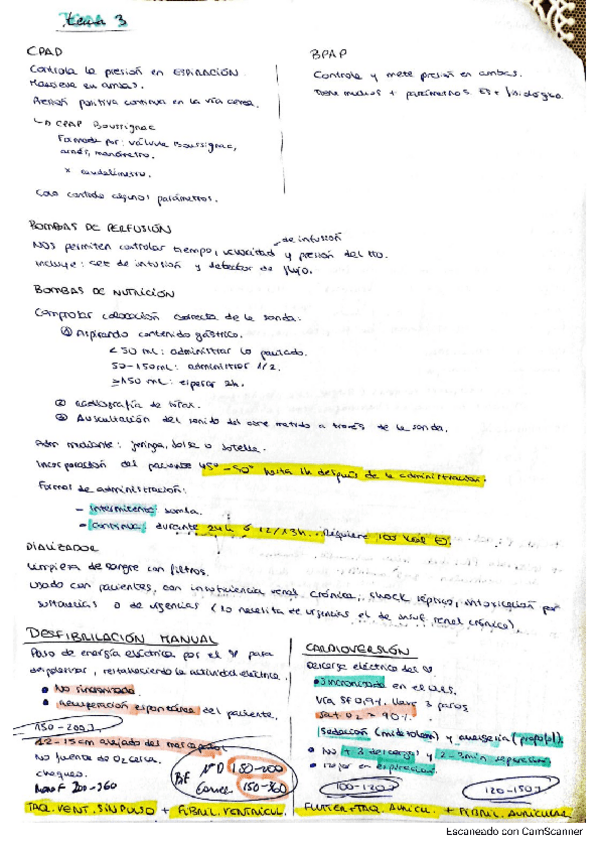 tema 3
CPAP
Controla la presión en ESPIRACIÓN.
en ambas.
Presión positiva continua en la vía aérea.
↳ CPAP Boussignac
Formada por: válvula Boussignac,
manómetro.
x caudalímetro.
Solo controla algunos parámetros.
BPAP
Controla y mete presión en ambas.
Tiene muchos + parámetros. Es + fisiológico.
BOMBAS DE PERFUSIÓN
de infusión
Nos permiten controlar tiempo, velocidad y presión del tto.
Incluye: set de infusión y detector de flujo.
BOMBAS DE NUTRICIÓN
Comprobar colocación correcta de la sonda:
① Aspirando contenido gástrico.
< 50 mL: administrar lo pautado.
50-150 mL: administrar 1/2.
≥150 mL: esperar 2h.
② Radiografía de tórax.
③ Auscultación del sonido del aire metido a través de la sonda.
Adm mediante: jeringa, bolsa o botella.
Incorporación del paciente 45º-50º hasta 1h después de la administración.
Formas de administración:
- Intermitente: bomba.
- Continua: durante 24h ó 12/13h. Requiere 100 kcal
DIALIZADOR
Limpieza de sangre con filtros.
Usado con pacientes, con insuficiencia renal crónica, shock séptico, intoxicación por
sustancias o de urgencias (lo necesita de urgencias el de insuf. renal crónico).
DESFIBRILACIÓN MANUAL
Paso de energía eléctrica por el para
despolarizar, restableciendo la actividad eléctrica.
• No sincronizada.
• Recuperación espontánea del paciente.
150-200J
12-15cm alejado del marcapasos
No fuente de O2 cerca.
chequeo.
200-360
BIF 150-200
150-360
TAQ. VENT. SIN PULSO + FIBRIL. VENTRICUL.
CARDIOVERSIÓN
Descarga eléctrica del
• Sincronizada en el QRS.
Vía SF 0,9%. Llave 3 pasos
Sat O2 > 90%.
Sedación (midazolam) y analgesia (propofol).
• No + 3 descargas y 2-3min separación
• Mejor en espiración.
100-120J
120-150J
FLUTTER + TAQ. AURICU. + FIBRIL. AURICULAR
Escaneado con CamScanner